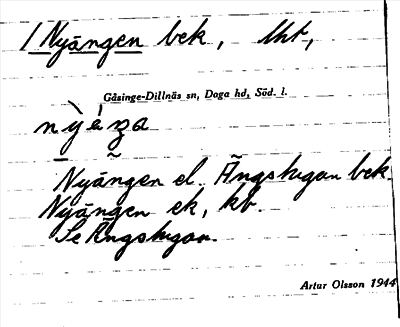 1 Nyängen bek, lht,
Gåsinge-Dillnäs sn, Daga hd, Söd. l.
Nyängen el. Ängstugan bek.
Nyängen ek, kb.
Se Ängstugan.
Artur Olsson 1944